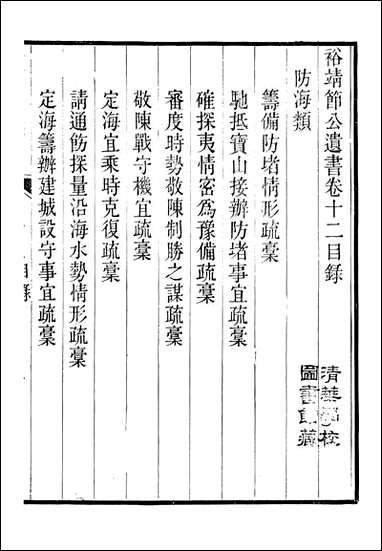 裕靖節公遺書卷十二目錄
防海類
籌備防堵情形疏稾
馳抵寶山接辦防堵事宜疏稾
確探夷情密為豫備疏稾
審度時勢敬陳制勝之謀疏稾
敬陳戰守機宜疏稾
定海宜乘時克復疏稾
請通飭探量沿海水勢情形疏稾
定海籌辦建城設守事宜疏稾
清華學校
圖書館藏
目錄